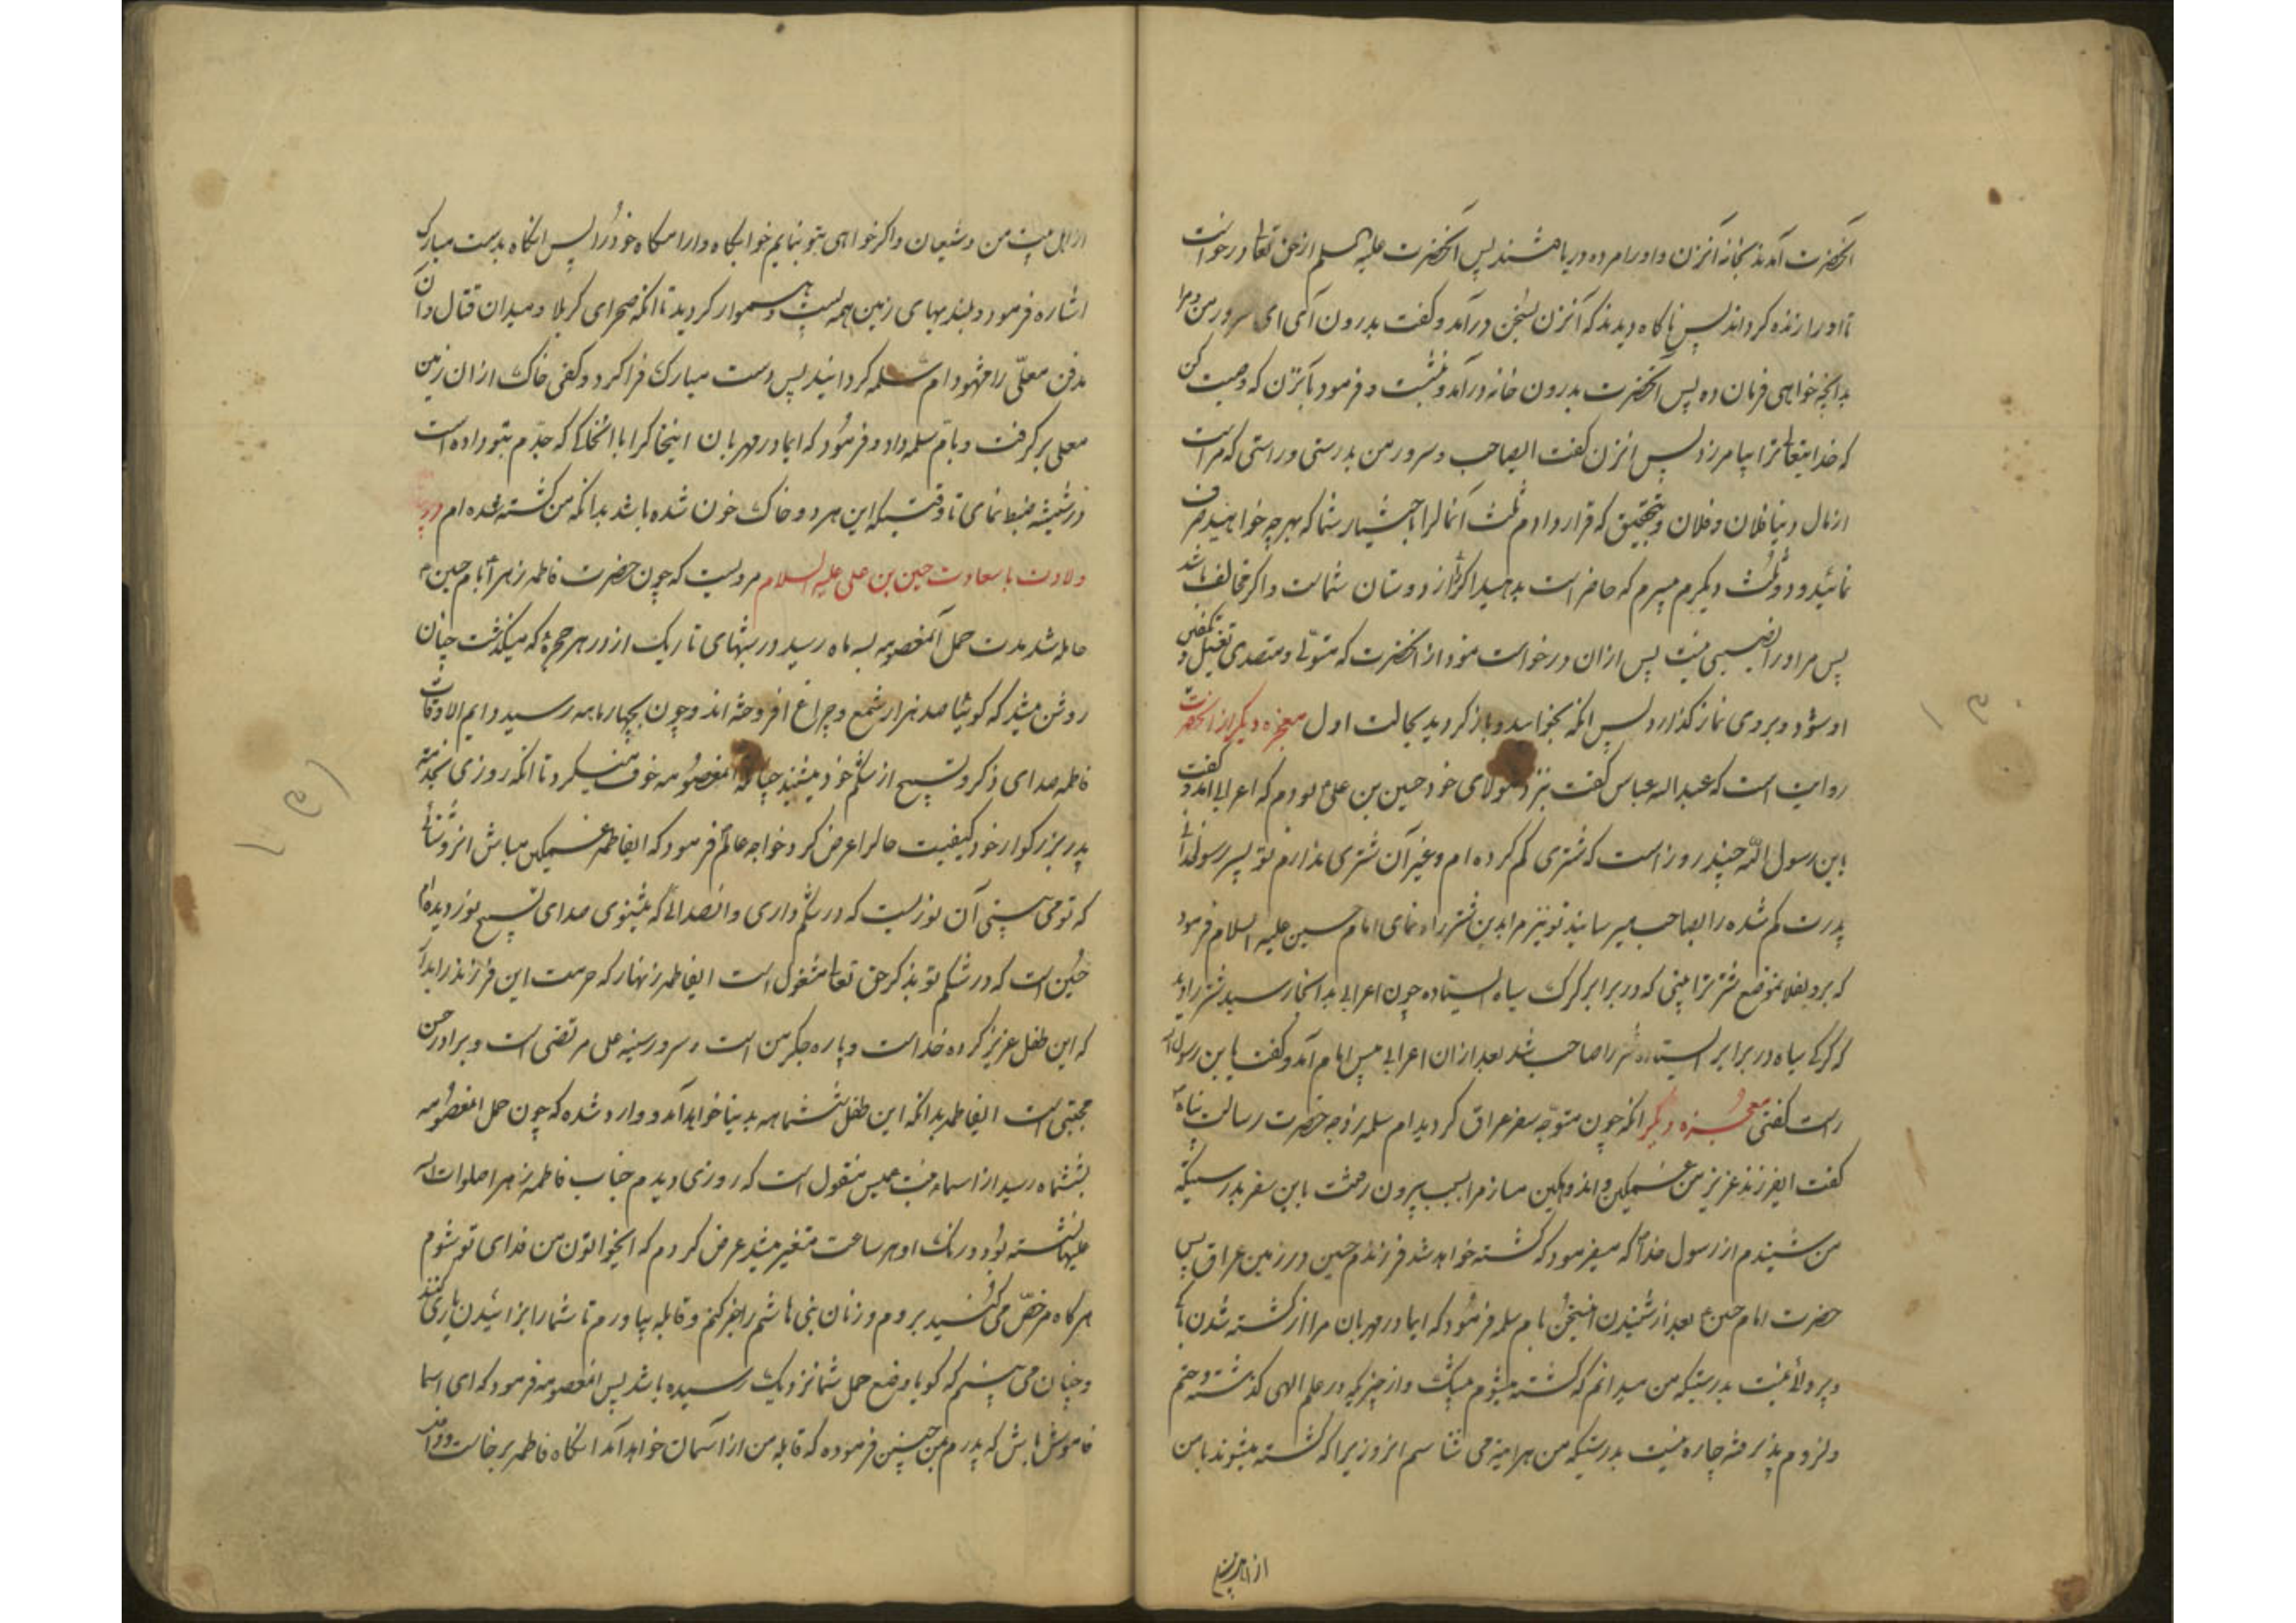 آنحضرت آمدند بخانه آنزن و او را مرده دریافتند پس آنحضرت علیه السلم از حق تعالی درخواست
تا او را زنده کرداند پس ناکاه دیدند که آنزن بسخن درآمد و کفت بدرون آی ای سرور من و مرا
بدانچه خواهی فرمان ده پس آنحضرت بدرون خانه درآمد و نشست و فرمود بآنزن که وصیت کن
که خدایتعالی ترا بیامرزد پس آنزن کفت ایصاحب و سرور من بدرستی و راستی که مراست
از مال دنیا فلان و فلان و بتحقیق که قرار دادم ثلث آنمالرا باختیار شما که بهر چه خواهید صرف
نمائید و دو ثلث دیکرم پسرم که حاضر است بدهید اکر از دوستان شماست و اکر مخالف باشد
پس مر او را نصیبی نیست پس ازان درخواست نمود از آنحضرت که متولی و متصدی تغسیل و تکفین
او شود و بروی نماز کذارد پس آنکه بخوابید و باز کردید بحالت اول معجزه دیکر از آنحضرت
روایت است که عبداله عباس کفت نزد مولای خود حسین بن علی بودم که اعرابی آمد و کفت
یابن رسول الله چند روز است که شتری کم کرده ام و غیر آن شتری ندارم تو پسر رسولخدائی
پدرت کم شده را بصاحب میرسانید تو نیز مرا بدین شتر راه نمای امام حسین علیه السلام فرمود
که برو بفلانموضع شتر ترا بینی که در برابر کرک سیاه ایستاده چون اعرابی بدانجا رسید شتر را دید
که کرکی سیاه در برابر ایستاده شتر را صاحب شد بعد ازان اعرابی پیس امام آمد و کفت یابن رسول الله
راست کفتی معجزه دیکر آنکه چون متوجه سفر عراق کردید ام سلمه زوجه حضرت رسالت پناه
کفت ایفرزند عزیز من غمکین و اندوهکین مساز مرا بسبب بیرون رفتنت باین سفر بدرستیکه
من شنیدم از رسول خدا که میفرمود که کشته خواهد شد فرزندم حسین در زمین عراق پس
حضرت امام حسین بعد از شنیدن اینسخن بام سلمه فرمود که ایمادر مهربان مرا از کشته شدن باکی
و پروائی نیست بدرستیکه من میدانم که کشته میشوم بیشک و از چیزیکه در علم الهی کذشته و حتم
و لزوم پذیرفته چاره نیست بدرستیکه من هر آینه می شناسم انروز زیرا که کشته میشوند با من
از اهل بیت
از اهل بیت من و شیعان و اکر خواهی بتو بنمایم خوابکاه و آرامکاه خود را پس آنکاه بدست مبارک
اشاره فرمود و بلندیهای زمین همه پست و هموار کردید تا آنکه صحرای کربلا و میدان قتال و آن
مدفن معلی را مشهود ام سلمه کردانید پس دست مبارک فرا کرد و کفی خاک از ان زمین
معلی برکرفت و بام سلمه داد و فرمود که ایمادر مهربان اینخاکرا با انخاکی که جدم بتو داده است
در شیشه ضبط نمای تا وقتیکه این هر دو خاک خون شده باشد بدانکه من کشته شده ام در
ولادت با سعادت حسین بن علی علیه السلام مرویست که چون حضرت فاطمه زهرا بامام حسین
حامله شد مدت حمل آنمعصومه بسه ماه رسید در شبهای تاریک از در هر حجره که میکذشت چنان
روشن میشد که کوئیا صد هزار شمع و چراغ افروخته اند و چون بچهار ماهه رسید دایم الاوقات
فاطمه صدای ذکر و تسبیح از شکم خود میشنید چنانکه آنمعصومه خوف میکرد تا آنکه روزی بخدمت
پدر بزرکوار خود کیفیت حالرا عرض کرد خواجه عالم فرمود که ایفاطمه غمکین مباش انروشنائی
که تو می بینی آن نوریست که در شکم داری و انصدائی که میشنوی صدای تسبیح نوردیده ام
حسین است که در شکم تو بذکر حق تعالی مشغول است ایفاطمه زنهار که حرمت این فرزند را بدار
که این طفل عزیز کرده خداست و پاره جکر من است و سرور سینه علی مرتضی است و برادر حسن
مجتبی است ایفاطمه بدانکه این طفل ششماهه بدنیا خواهد آمد و وارد شده که چون حمل آنمعصومه
بششماه رسید از اسماء بنت عمیس منقول است که روزی دیدم جناب فاطمه زهرا صلوات الله
علیها نشسته بود و رنک او هر ساعت متغیر میشد عرض کردم که ایخواتون من فدای تو شوم
هرکاه مرخص می کنید بروم و زنان بنی هاشم را خبر کنم و قابله بیاورم تا شما را بزائیدن یاری کنند
و چنان می بینم که کویا وضع حمل شما نزدیک رسیده باشد پس آنمعصومه فرمود که ای اسما
خاموش باش که پدرم بمن چنین فرموده که قابله من از آسمان خواهد آمد آنکاه فاطمه برخاست و